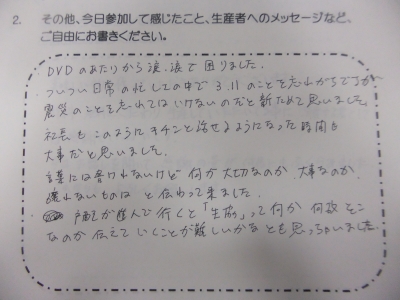 2. その他、今日参加して感じたこと、生産者へのメッセージなど、
ご自由にお書きください。
DVDのあたりから涙、涙で困りました。
ついつい日常の忙しさの中で3.11のことを忘れがちですが
震災のことを忘れてはいけないのだと新ためて思いました。
社長もこのようにキチンと話せるようになった時間も
大事だと思いました。
言葉には書けないけど何が大切なのか、大事なのか、
壊れないものは と伝わって来ました。
が進んで行くと「生協」って何か 何故そこ
なのか伝えていくことが難しいかなとも思っちゃいました。